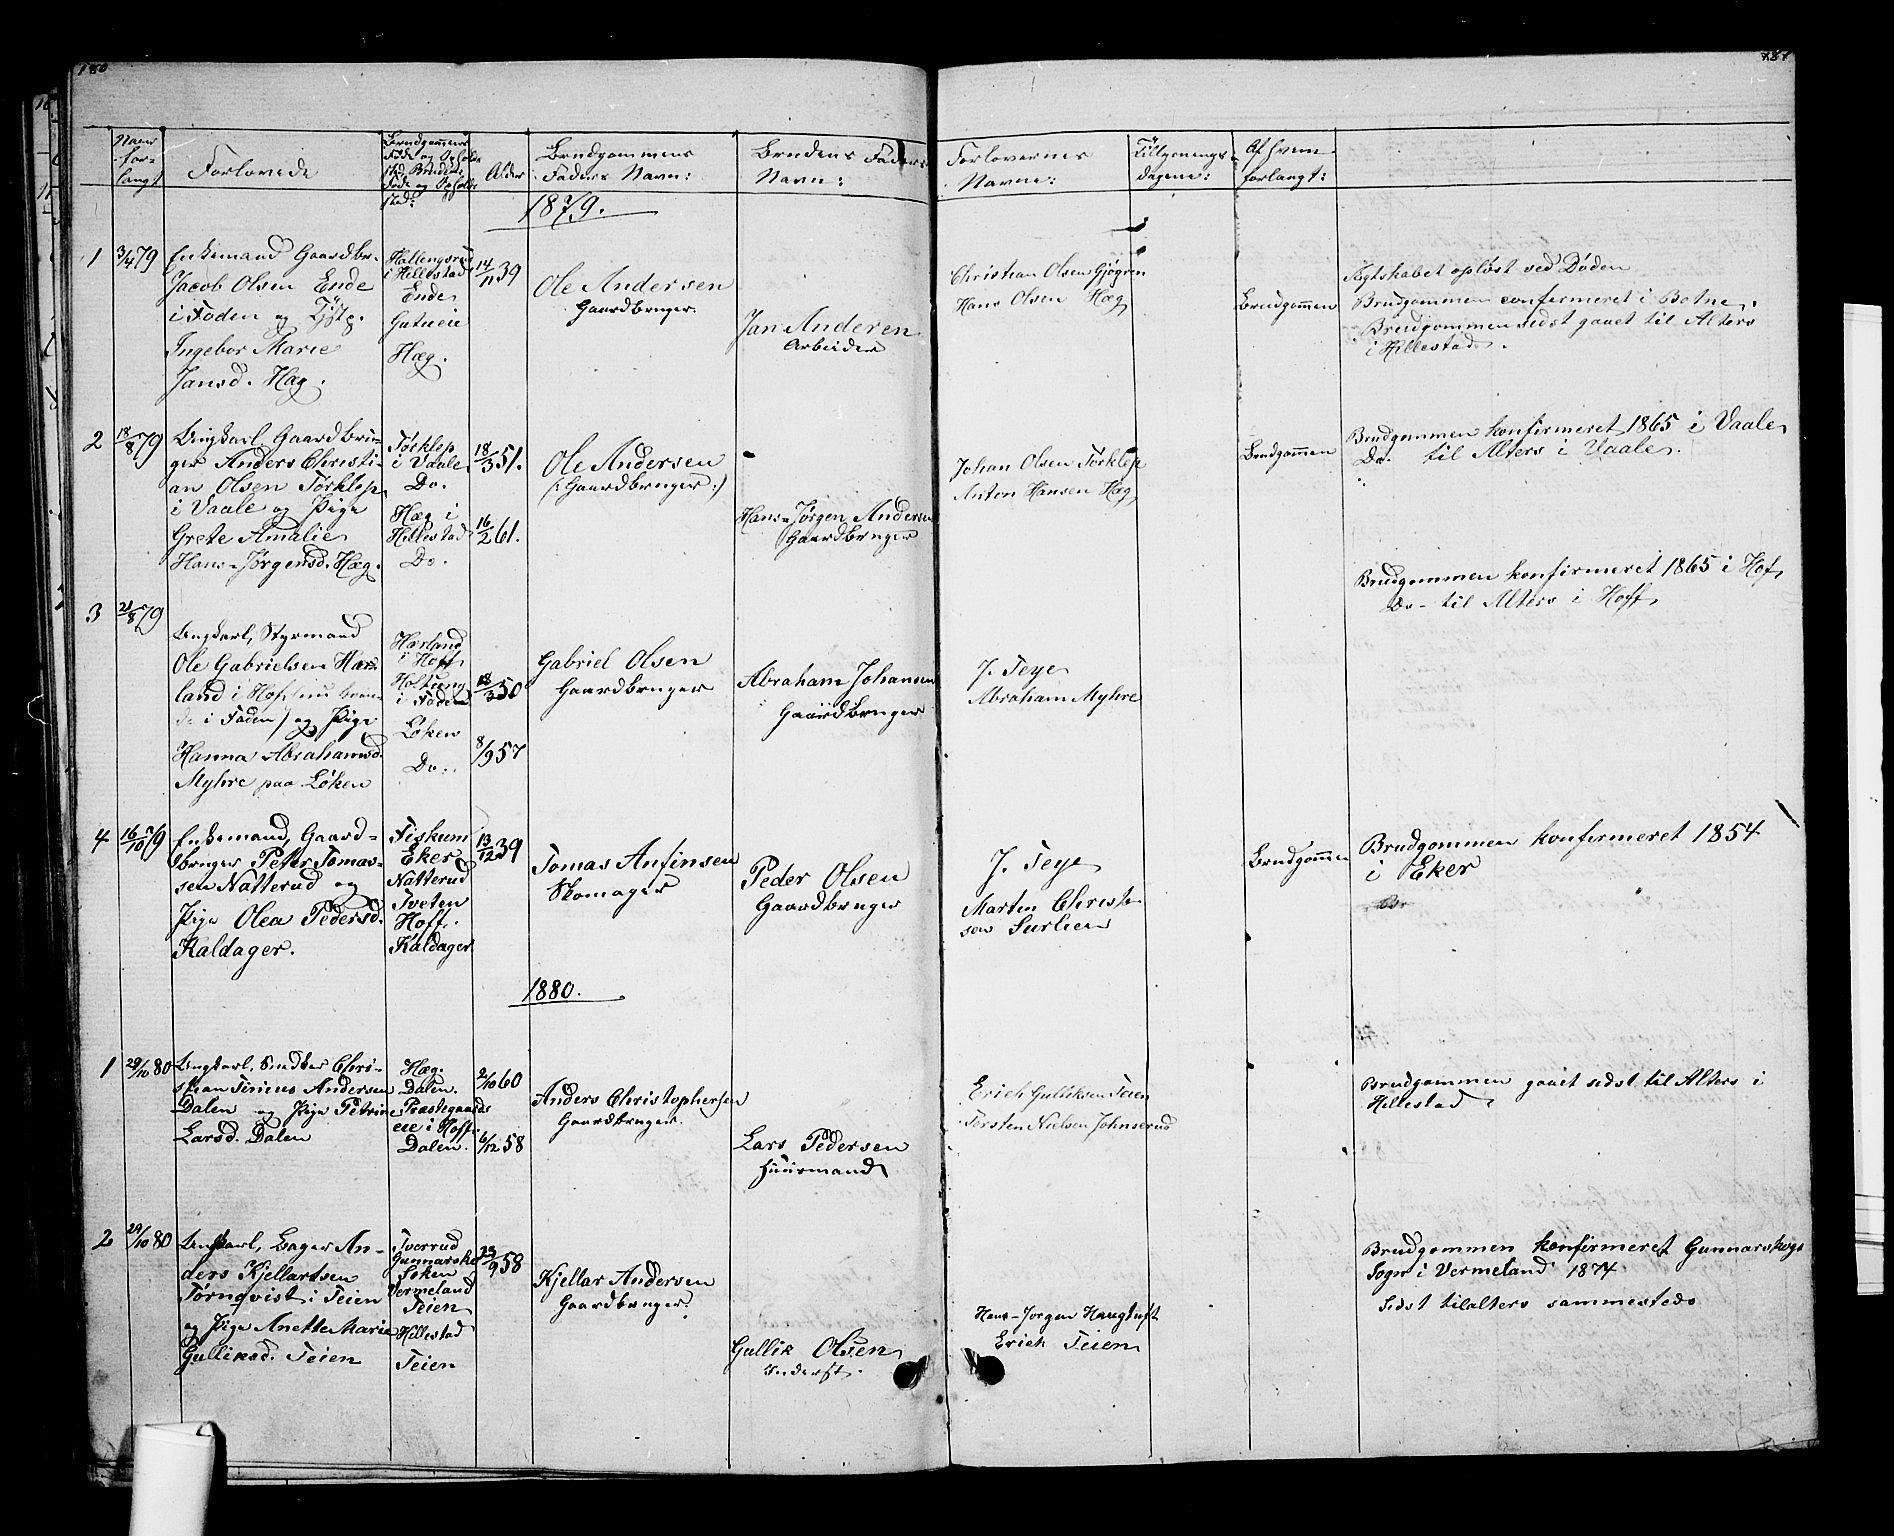 180
187
Naar
for-
langt
Forlovede
Brudgommens
Føde og Ophold
sted. Brudens
Føde og Ophold
sted:
Alder
Brudgommens
Faders Navn:
Brudens Faders
Navn:
Forlovernes
Navne:
Tillysnings-
dagene:
Af hvem
forlangt:
1879.
1 3/4 79
Enkemand Gaardbr.
Jacob Olsen Ende
i Foden og
Ingebor Marie
Jansd. Hæg.
Hallingsrud
i Hillestad
Ende
Hæg.
14/11 39
Ole Andersen
Gaardbruger.
Jan Anderen
Arbeider
Christian Olsen Gjøgren
Hans Olsen Hæg
Brudgommen
Ægtskabet opløst ved Døden
Brudgommen confermeret i Botne.
Brudgommen sidst gaaet til Alters
i Hillestad.
2 18/8 79
Ungkarl Gaardbru-
ger Anders Christi-
an Olsen Førklep
i Vaale og Pige
Grete Amalie
Hans-Jørgensd. Hæg.
Førklep
i Vaale
Do.
Hæg i
Hillestad
Do.
18/3 51.
16/2 61.
Ole Andersen
(: Gaardbruger :)
Hans-Jørgen Andersen
Gaardbruger
Johan Olsen Førklep
Anton Hansen Hæg
Brudgommen
Brudgommen konfirmeret 1865 i Vaale
Do. til Alters i Vaale.
3 21/8 79
Ungkarl, Styrmand
Ole Gabrielsen Hær-
land i Hof (nu
i Foden) og Pige
Hanna Abrahamsd.
Myhre paa Løken
Hærland
i Hoff
Holtung
i Foden
Løken
Do.
18/3 50
8/9 57
Gabriel Olsen
Gaardbruger
Abraham Johansen
Gaardbruger
J. Teye
Abraham Myhre
Brudgommen konfirmeret 1865 i Hof
Do - til Alters i Hoff
4 16/10 79
Enkemand, Gaard-
bruger Peter Tomas-
sen Natterud og
Pige Olea Pedersd.
Kaldager.
Fiskum
Eker
Natterud
Tveten
Hoff.
Kaldager
13/12 39
Tomas Anfinsen
Skomager
Peder Olsen
Gaardbruger
J. Teye
Marten Christ-
sen Surlien
Brudgommen
Brudgommen konfermeret 1854
i Eker
1880.
1 29/10 80
Ungkarl, Snedker Chri-
stian Andersen
Dalen og Pige Petrine
Larsd. Dalen
Hæg.
Dalen.
Præstegaards
eie i Hoff
Dalen.
2/10 60
6/12 58
Anders Christophersen
Gaardbruger.
Lars Pedersen
Huusmand
Erich Gulliksen Teien
Torsten Nielsen Johnserud
Brudgommen gaaet sidst til Alters i
Hillestad
2 29/10 80
Ungkarl, Bager An-
ders Kjellartsen
Tørnqvist i Teien
og Pige Anette Marie
Gulliksd. Teien
Tverrud
Gunnarskogs
Soken
Vermeland
Teien
Hillestad
Teien
23/9 58
Kjellar Andersen
Gaardbruger.
Gullik Olsen
Inderst.
Hans-Jørgen Haugtuft
Erich Teien
Brudgommen konfermeret Gunnarskogs
Sogn i Vermeland 1874
Sidst tilalters sammesteds